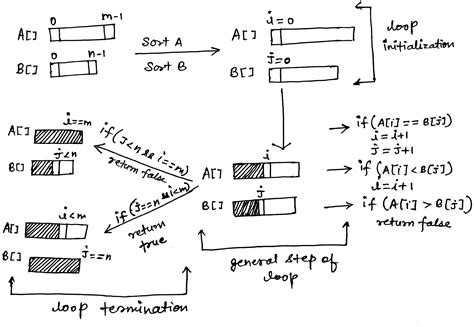 0 m-1
A[]
0 n-1
B[]
Sort A
Sort B
i=0
A[]
j=0
B[]
loop
initialization
i==m
A[]
j<n
B[]
if(j<n && i==m)
return false
if(j==n && i<m)
return
true
i<m
A[]
j==n
B[]
i
A[]
j
B[]
if (A[i]==B[j])
i=i+1
j=j+1
if (A[i]<B[j])
i=i+1
if (A[i]>B[j])
return false
general step of
loop
loop termination